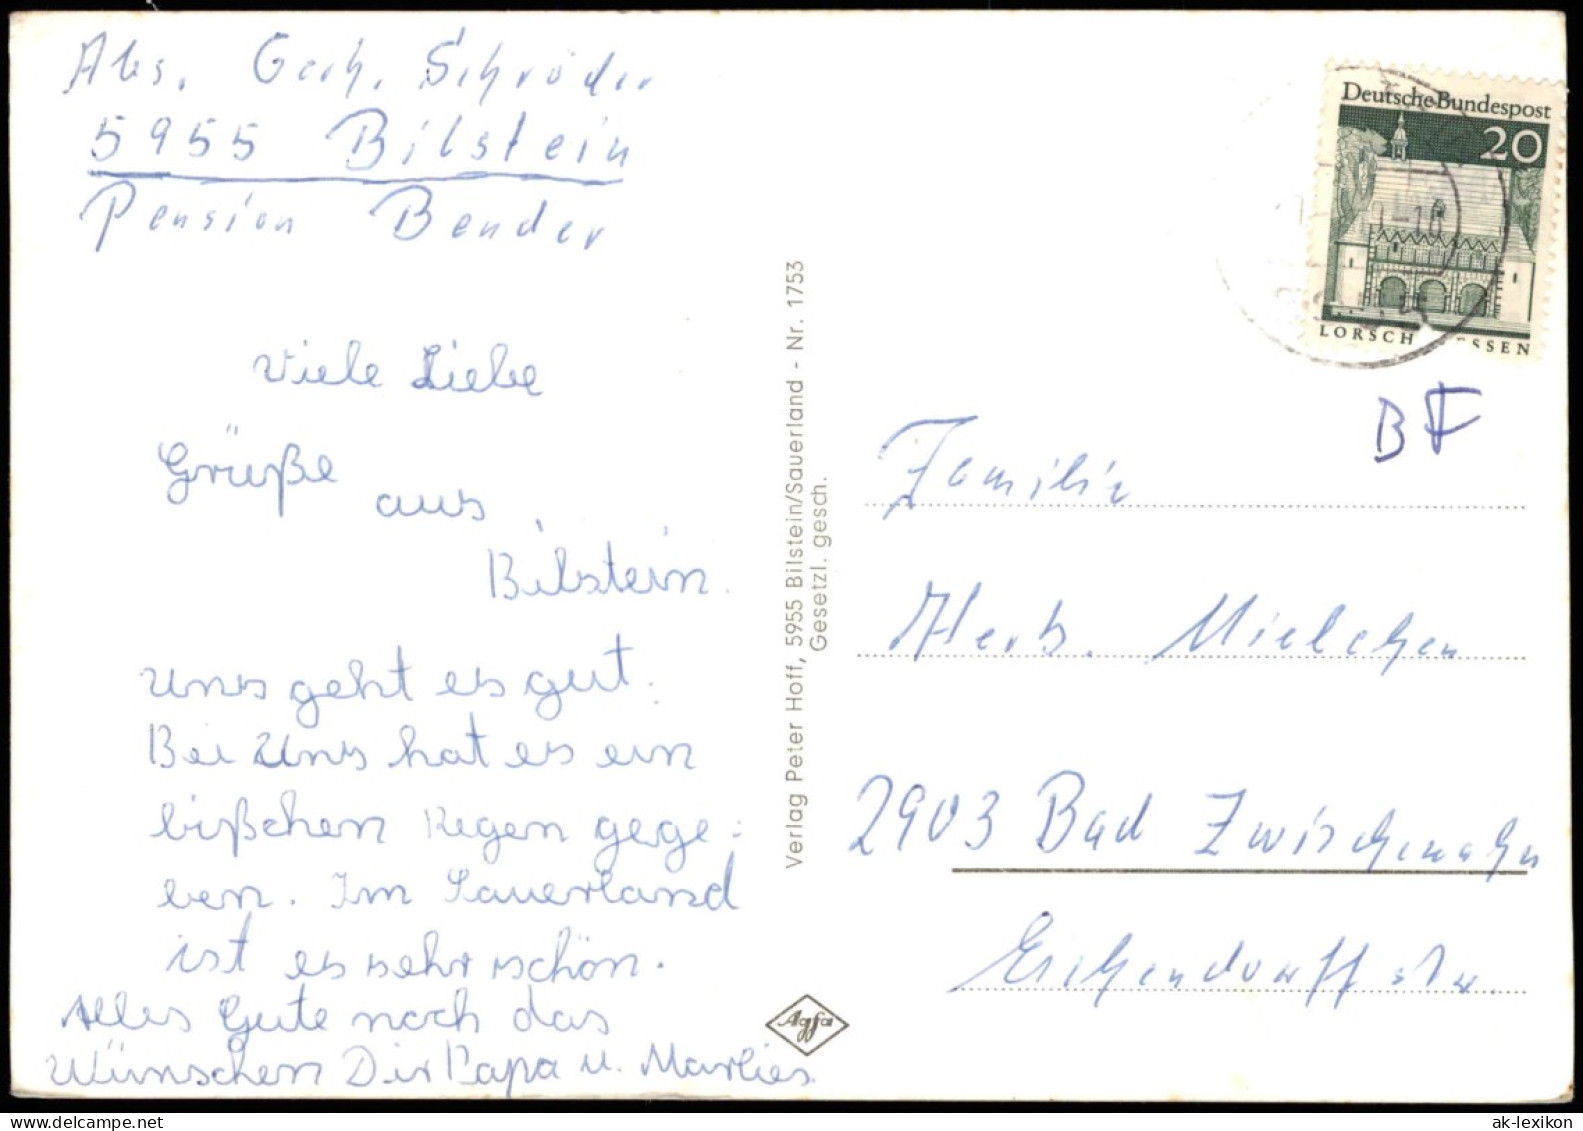 Abs. Gerh. Schröder
5955 Bilstein
Pension Bender
Viele Liebe
Grüße
aus
Bilstein.
Uns geht es gut.
Bei Uns hat es ein
bißchen Regen gege-
ben. Im Sauerland
ist es sehr schön.
Alles Gute noch das
Wünschen Dir Papa u. Marlies.
Verlag Peter Hoff, 5955 Bilstein/Sauerland - Nr. 1753
Gesetzl. gesch.
Agfa
Deutsche Bundespost
20
LORSCH ESSEN
BF
Familie
Herb. Mielchen
2903 Bad Zwischenahn
Eichendorffstr.
ak-lexikon